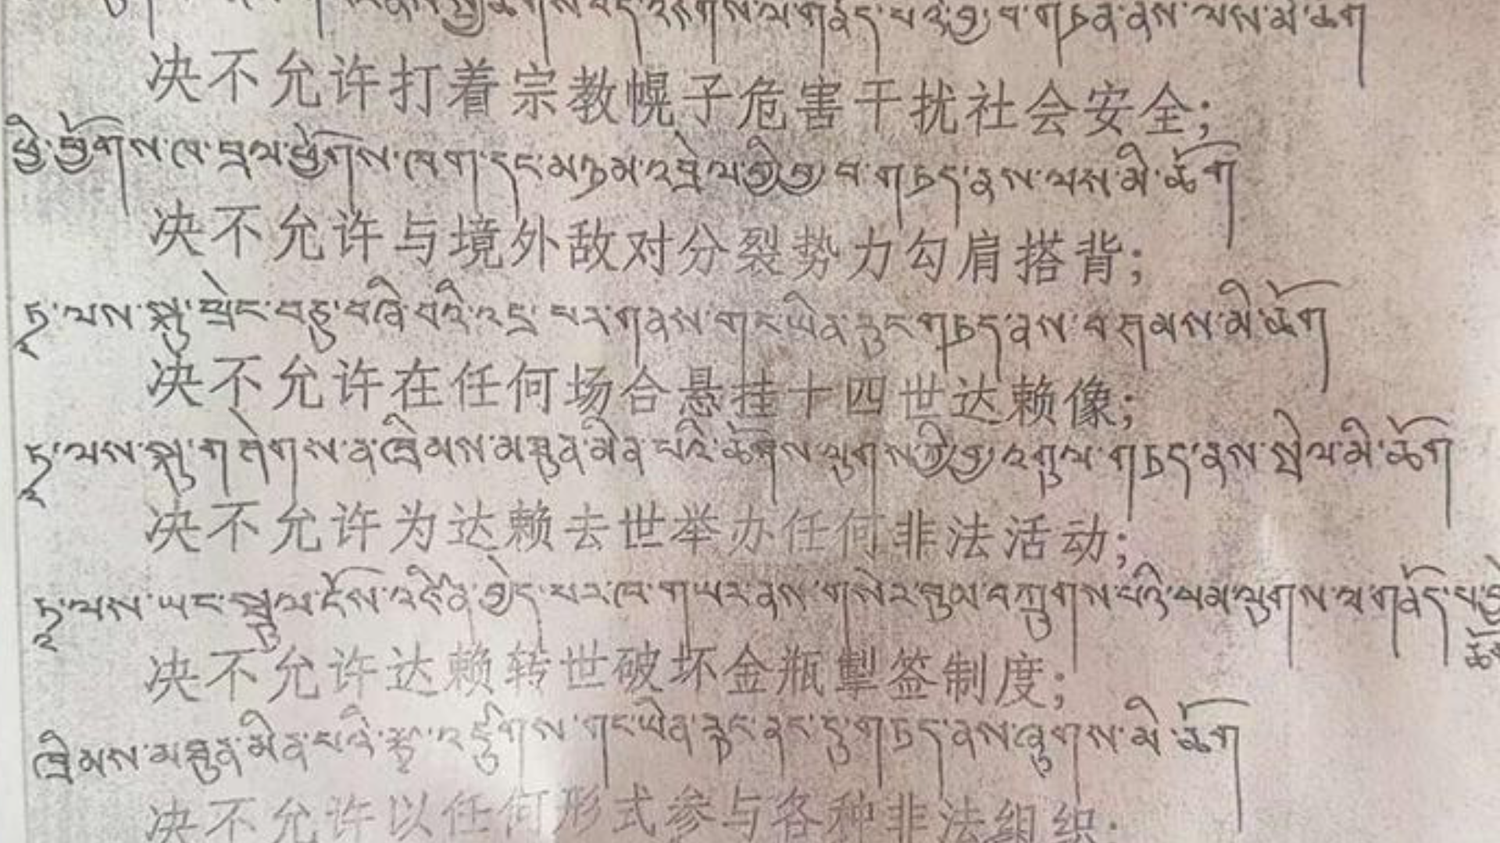 决不允许打着宗教幌子危害干扰社会安全;
ཕྱི་ཕྱོགས་ཁ་བྲལ་ཕྱོགས་ཁག་དང་མཉམ་འབྲེལ་བྱི་བྱ་བ་གཏད་ནས་ལས་མི་ཆོག
决不允许与境外敌对分裂势力勾肩搭背;
ཏཱ་ལས་སྐུ་ཕྲེང་བཅུ་བཞི་བའི་འདྲ་པར་གནས་གང་ཡིན་རུང་གཏད་ནས་བ
决不允许在任何场合悬挂十四世达赖像;
ཏཱ་ལས་སྐུ་གཤེགས་ན་ཁྲིམས་མཐུན་མིན་པའི་ཆོགས་ལུགས་ཀྱི་བྱ་འགུལ་གཏད་ནས་སྤེལ་མི་ཆོག
决不允许为达赖去世举办任何非法活动;
ཏཱ་ལས་ཡང་སྤྲུལ་ངོས་འཛིན་བྱེད་པར་ཁ་གཡར་ནས་གསེར་བུམ་དཀྲུགས་པའི་ལམ་ལུགས་ལ་གནོད་པ
决不允许达赖转世破坏金瓶掣签制度;
ཁྲིམས་མཐུན་མིན་པའི་རྩ་འཛུགས་གང་ཡིན་རུང་ནང་དུ་གཏད་ནས་ཞུགས་མི་ཆོག
决不允许以任何形式参与各种非法组织;